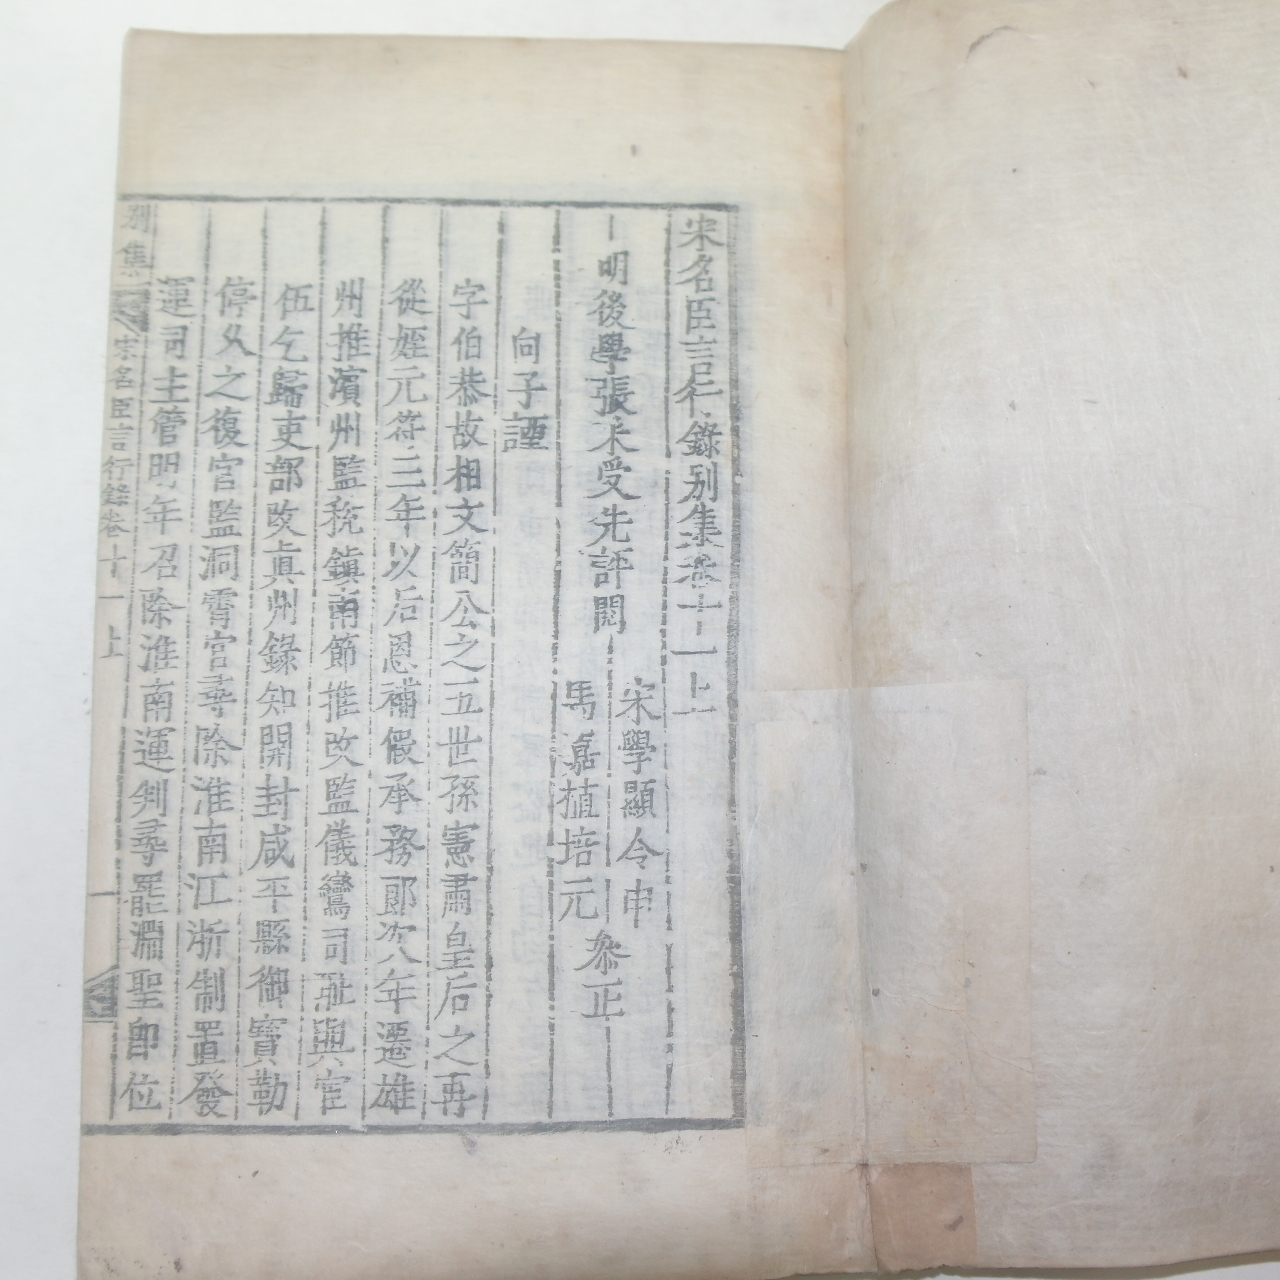 宋名臣言行錄別集卷十一上
明後學張采受先評閱
宋學顯令申
馬嘉植培元
叅正
向子諲
字伯恭故相文簡公之五世孫憲肅皇后之再
從姪元符三年以后恩補假承務郞次八年遷雄
州推濱州監稅鎭南節推改監儀鸞司恥與宦
伍乞歸吏部改眞州錄知開封咸平縣御寶勒
停久之復官監洞霄宮尋除淮南江浙制置發
運司主管明年召除淮南運判尋罷淵聖卽位
別集
宋名臣言行錄卷十一上
一